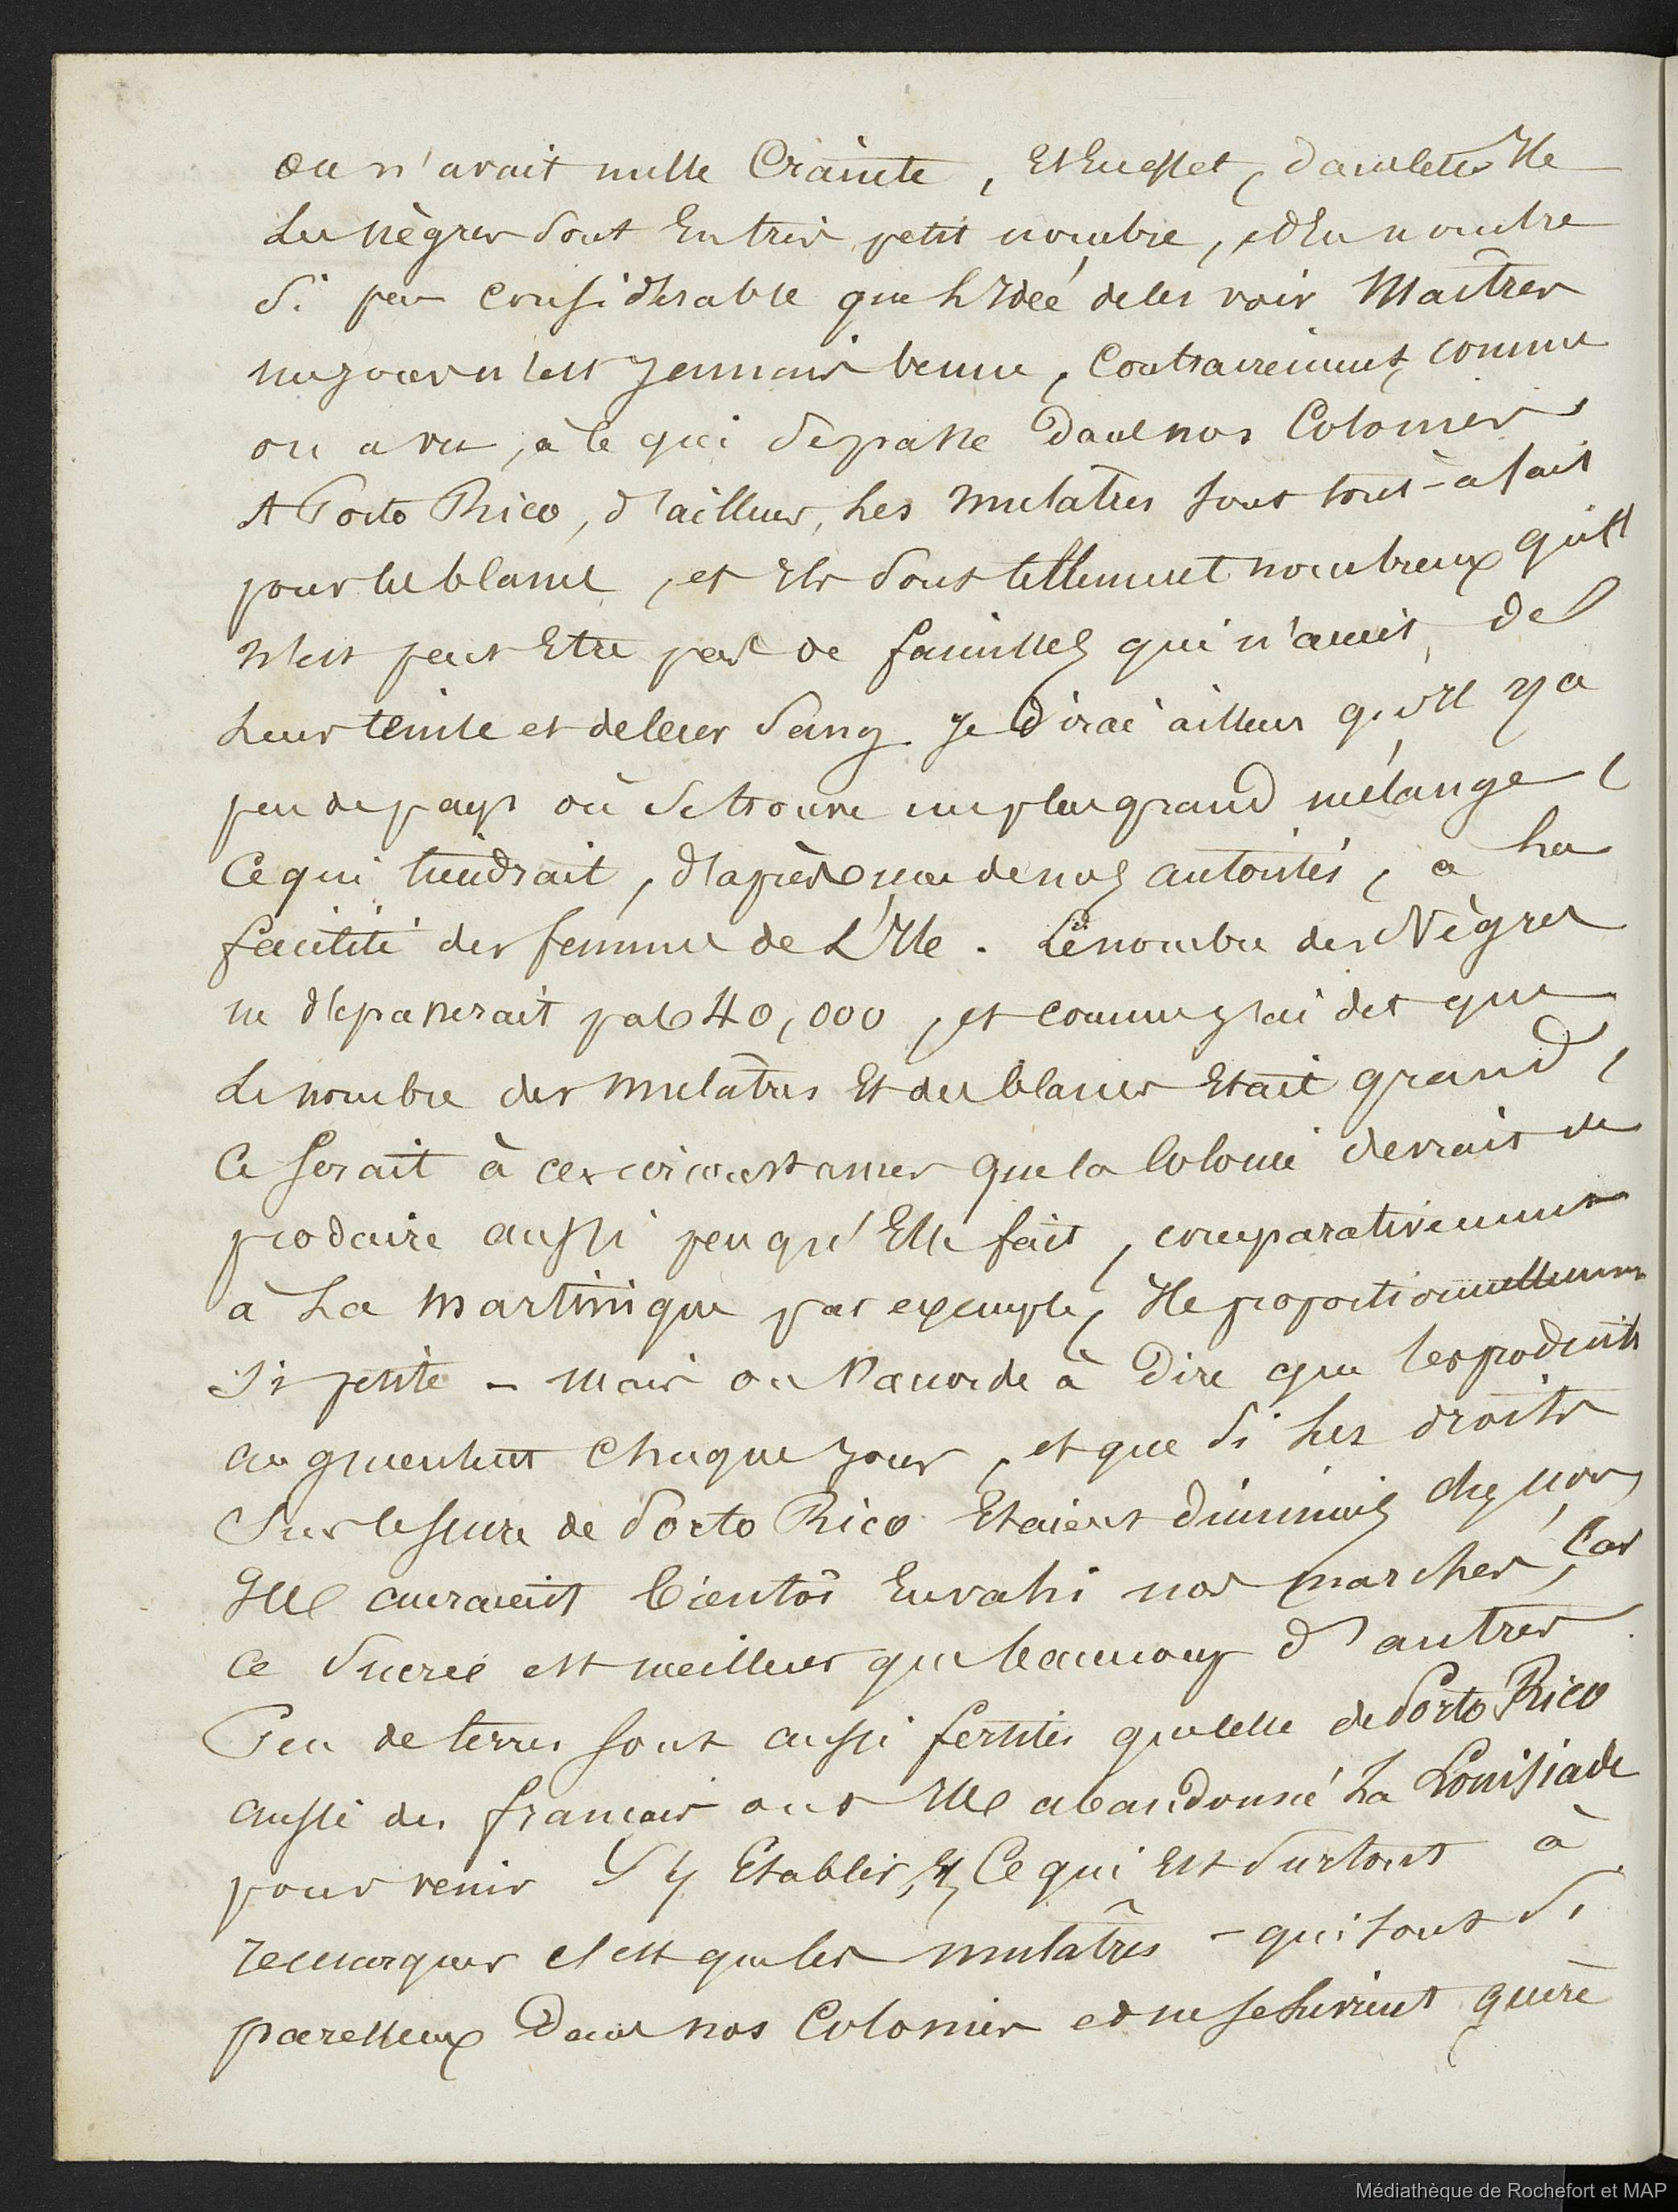 on n'avait nulle Crainte, Et En effet, dans cette Ile
Les nègres sont En très petit nombre, et En nombre
si peu considérable que L'Idée de les voir Maîtres
un jour n'est Jammais venue, Contrairement, comme
on a vu, à ce qui se passe dans nos Colonies
A Porto Rico, d'ailleurs, Les mulatres sont tout-à fait
pour les blancs, et Ils sont tellement nombreux qu'Il
n'est peut Etre pas de familles qui n'aient de
Leur teinte et de leur Sang. Je dirai ailleurs qu'Il y a
peu de pays où se trouve un plus grand mélange,
Ce qui tiendrait, d'après une de nos autorités, à La
facilité des femmes de L'Ile. Le nombre des Nègres
ne dépasserait pas 40,000, et comme j'ai dit que
Le nombre des mulâtres Et des blancs Etait grand,
Ce serait à ces circonstances que la Colonie devrait de
produire aussi peu qu'Elle fait, comparativement
à La Martinique par exemple, Ile proportionnellement
Si petite - mais on s'accorde à dire que les produits
augmentent chaque jour, et que si Les droits
Sur le sucre de Porto Rico Etaient diminués chez nous
Il aurait bientôt Envahi nos marchés, Car
ce Sucre est meilleur que beaucoup d'autres
Peu de terres sont aussi fertiles que celle de Porto Rico
aussi des français ont Ils abandonné La Louisiade
pour venir S'y Etablir, Et Ce qui Est Surtout à
remarquer c'est que les mulâtres - qui sont si
paresseux Dans nos Colonies et ne se livrent guère